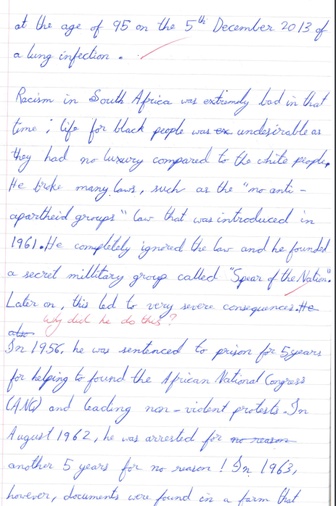 at the age of 95 on the 5th December 2013 of
a lung infection.
Racism in South Africa was extremly bad in that
time; life for black people was undesirable as
they had no luxury compared to the white people.
He broke many laws, such as the "no anti-
apartheid groups" law that was introduced in
1961. He completely ignored the law and he founded
a secret millitary group called "Spear of the Nation".
Later on, this led to very severe consequences. He
also
Why did he do this?
In 1956, he was sentenced to prison for 5 years
for helping to found the African National Congress
(ANC) and leading non-violent protests. In
August 1962, he was arrested for no reason
another 5 years for no reason! In 1963,
however, documents were found in a farm that